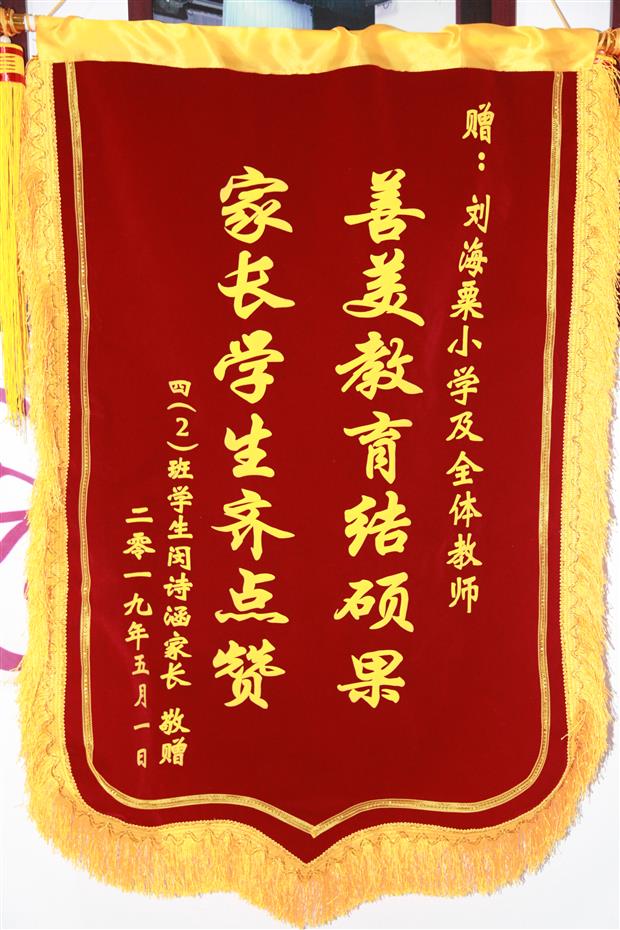 赠：刘海粟小学及全体教师
善美教育结硕果
家长学生齐点赞
四（2）班学生闵诗涵家长 敬赠
二零一九年五月一日